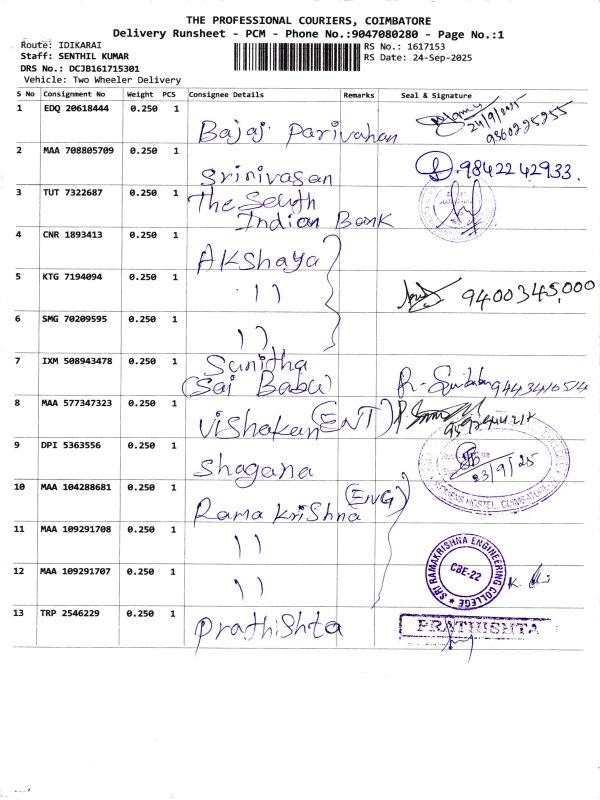 THE PROFESSIONAL COURIERS, COIMBATORE
Delivery Runsheet - PCM - Phone No.:9047080280 - Page No.:1
Route: IDIKARAI
RS No.: 1617153
Staff: SENTHIL KUMAR
RS Date: 24-Sep-2025
DRS No.: DCJB161715301
Vehicle: Two Wheeler Delivery
S No Consignment No Weight PCS Consignee Details Remarks Seal & Signature
1 EDQ 20618444 0.250 1 Bajaj Parivahan 24/9/2025
9360295255
2 MAA 708805709 0.250 1 Srinivasan 9842242933.
3 TUT 7322687 0.250 1 The South
Indian Bank
4 CNR 1893413 0.250 1 Akshaya
5 KTG 7194094 0.250 1 11 9400345000
6 SMG 70209595 0.250 1 11
7 IXM 508943478 0.250 1 Sunitha
(Sai Babu) 9443410514
8 MAA 577347323 0.250 1 Vishakan (ENT)
9 DPI 5363556 0.250 1 Shagana 23/9/25
HOSTEL, COIMBATORE
10 MAA 104288681 0.250 1 Rama Krishna (ENG)
11 MAA 109291708 0.250 1 11
12 MAA 109291707 0.250 1 11 SRI RAMAKRISHNA ENGINEERING COLLEGE
CBE-22
13 TRP 2546229 0.250 1 Prathishta PRATHISHTA